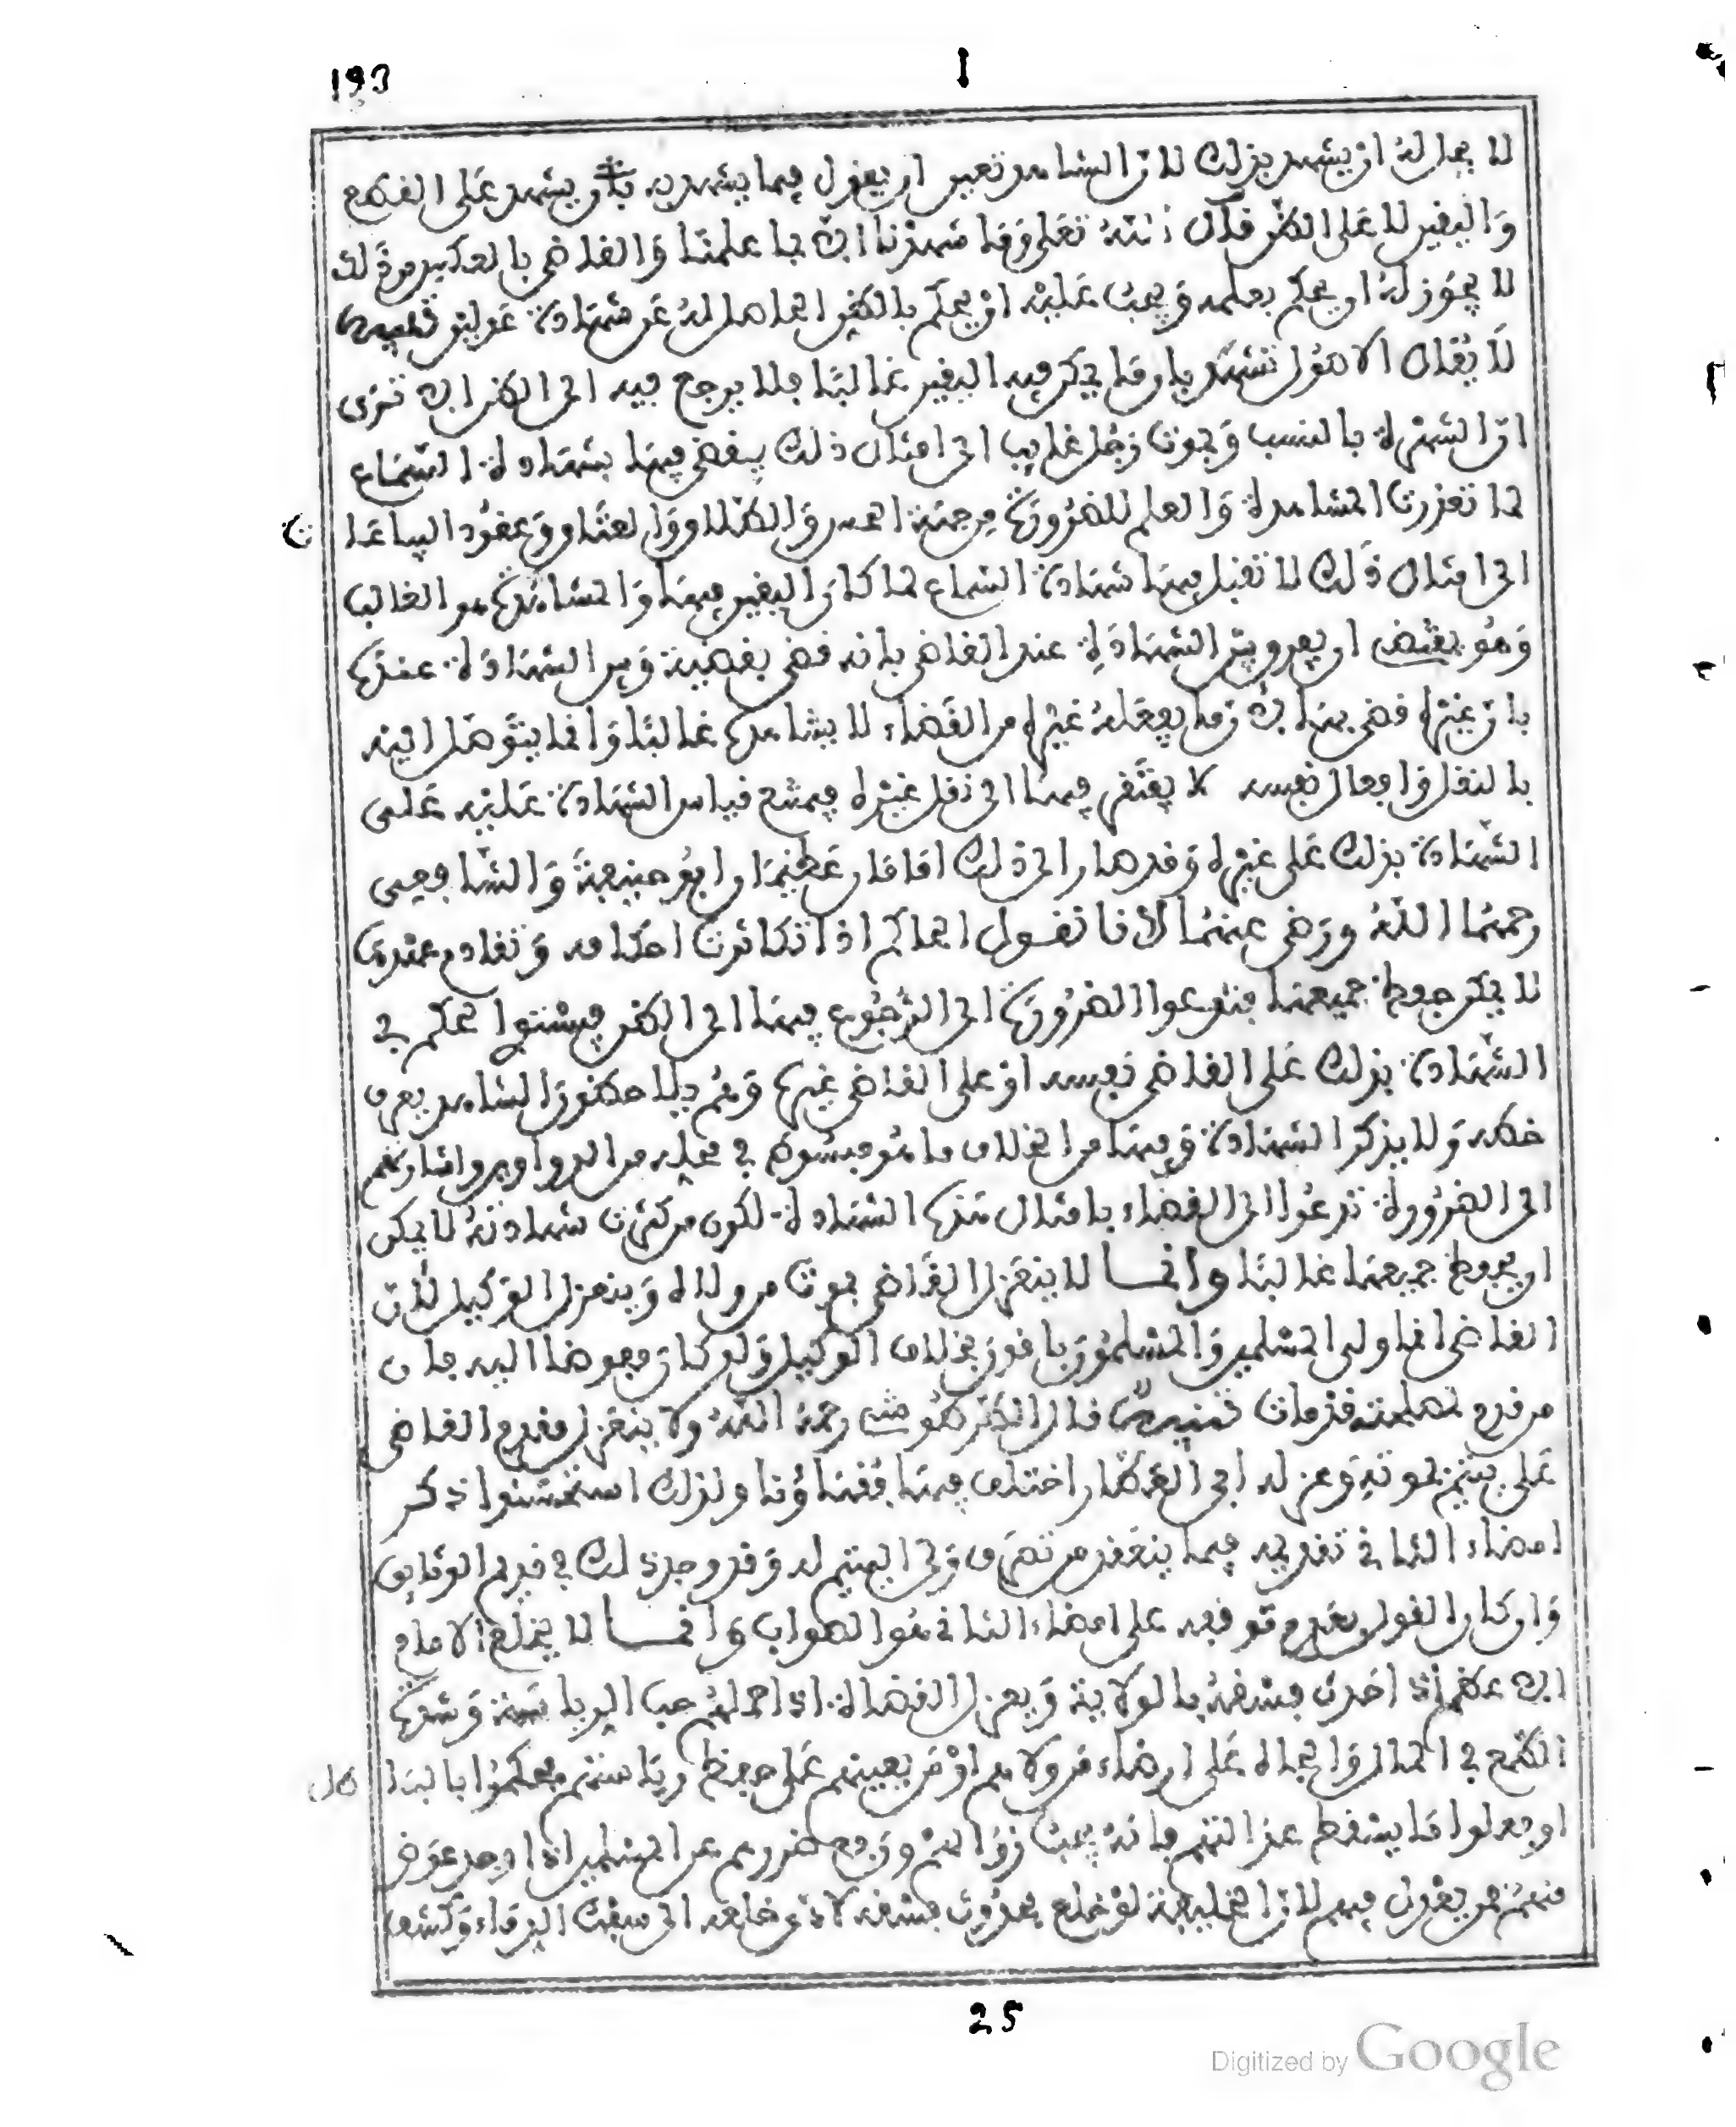 193
1
لا يحل له ان يشهد بذلك لان الشاهد تعين ان يعول فيما يشهد به بان يشهد على القطع
واليقين لا على الظن قال الله تعلى وما شهدنا الا بما علمنا والقاضي بالعكس من ذلك
لا يجوز له ان يحكم بعلمه ويجب عليه ان يحكم بالظن الحاصل له عن شهادة عدلين تنبيه
لا يقال الاصول تشهد بان ما يمكن فيه اليقين غالبا فلا يرجع فيه الى الظن الا ترى
ان الشهرة بالنسب وبموت رجل غايب الى امثال ذلك يقضى فيها بشهادة السماع
لما تعذرت المشاهدة والعلم للضرورة من جهة الحس والطلاق والعتاق وعقود البياعات
الى امثال ذلك لا تقبل فيها شهادة السماع لما كان اليقين فيها والمشاهدة هو الغالب
وهو يقتضي ان يفرق بين الشهادة عند القاضي بانه قضى بقضية وبين الشهادة عنده
بان غيره قضى بها لان ما يفعله غيره من القضاء لا يشاهده غالبا وانما يتوصل اليه
بالنقل وافعال نفسه لا يفتقر فيها الى نقل غيره فيمتنع قياس الشهادة عليه على
الشهادة بذلك على غيره وقد صار الى ذلك امامان عظيمان ابو حنيفة والشافعي
رحمهما الله ورضي عنهما لانا نقول الحاكم اذا تكاثرت احكامه وتقادم عهده
لا يمكن حفظ جميعها فتدعوا الضرورة الى الرجوع فيها الى الظن فيستوي الحكم في
الشهادة بذلك على القاضي نفسه او على القاضي غيره وتم دليلا حضور الشاهد يعرف
خطه ولا يذكر الشهادة وفيها من الخلاف ما هو مبسوط في محله من الدواوين واشارتهم
الى الضرورة تدعوا الى القضاء بامثال هذه الشهادة لكون من كثرت شهادته لا يمكن
ان يحفظ جميعها غالبا وانما لا ينعزل القاضي بموت من ولاه وينعزل الوكيل لان
القاضي انما ولي المسلمين والمسلمون باقون بخلاف الوكيل ولو كان مفوضا اليه فان
من قدم لمصلحته قد مات تنبيه قال الطرطوشي رحمه الله ولا ينعزل مقدم القاضي
على يتيم بموته وعزله ابن العطار اختلف فيها فقهاؤنا ولذلك استحسنوا ذكر
امضاء الثاني تقديمه فيما ينعقد من تصرف ولي اليتيم له وقد وجد ذلك في قديم الوثايق
وان كان القول بعدم توقفه على امضاء الثاني هو الصواب وانما لا يخلع الامام
الاعظم اذا احدث فسقه بالولاية ويعزل القضاة اذا حملهم حب الرياسة وشدة
الطمع في المال والجاه على ارضاء من ولاهم او من يعينهم على حفظ رياستهم فحكموا بالهوا
او فعلوا ما يسقط عدالتهم فانه يجب زوالهم ورفع ضررهم عن المسلمين اذا وجد عوض
منهم من يعدل فيهم لان الخليفة لو خلع بحدوث فسقه لادى خلعه الى سفك الدماء وكشف
25
Digitized by Google